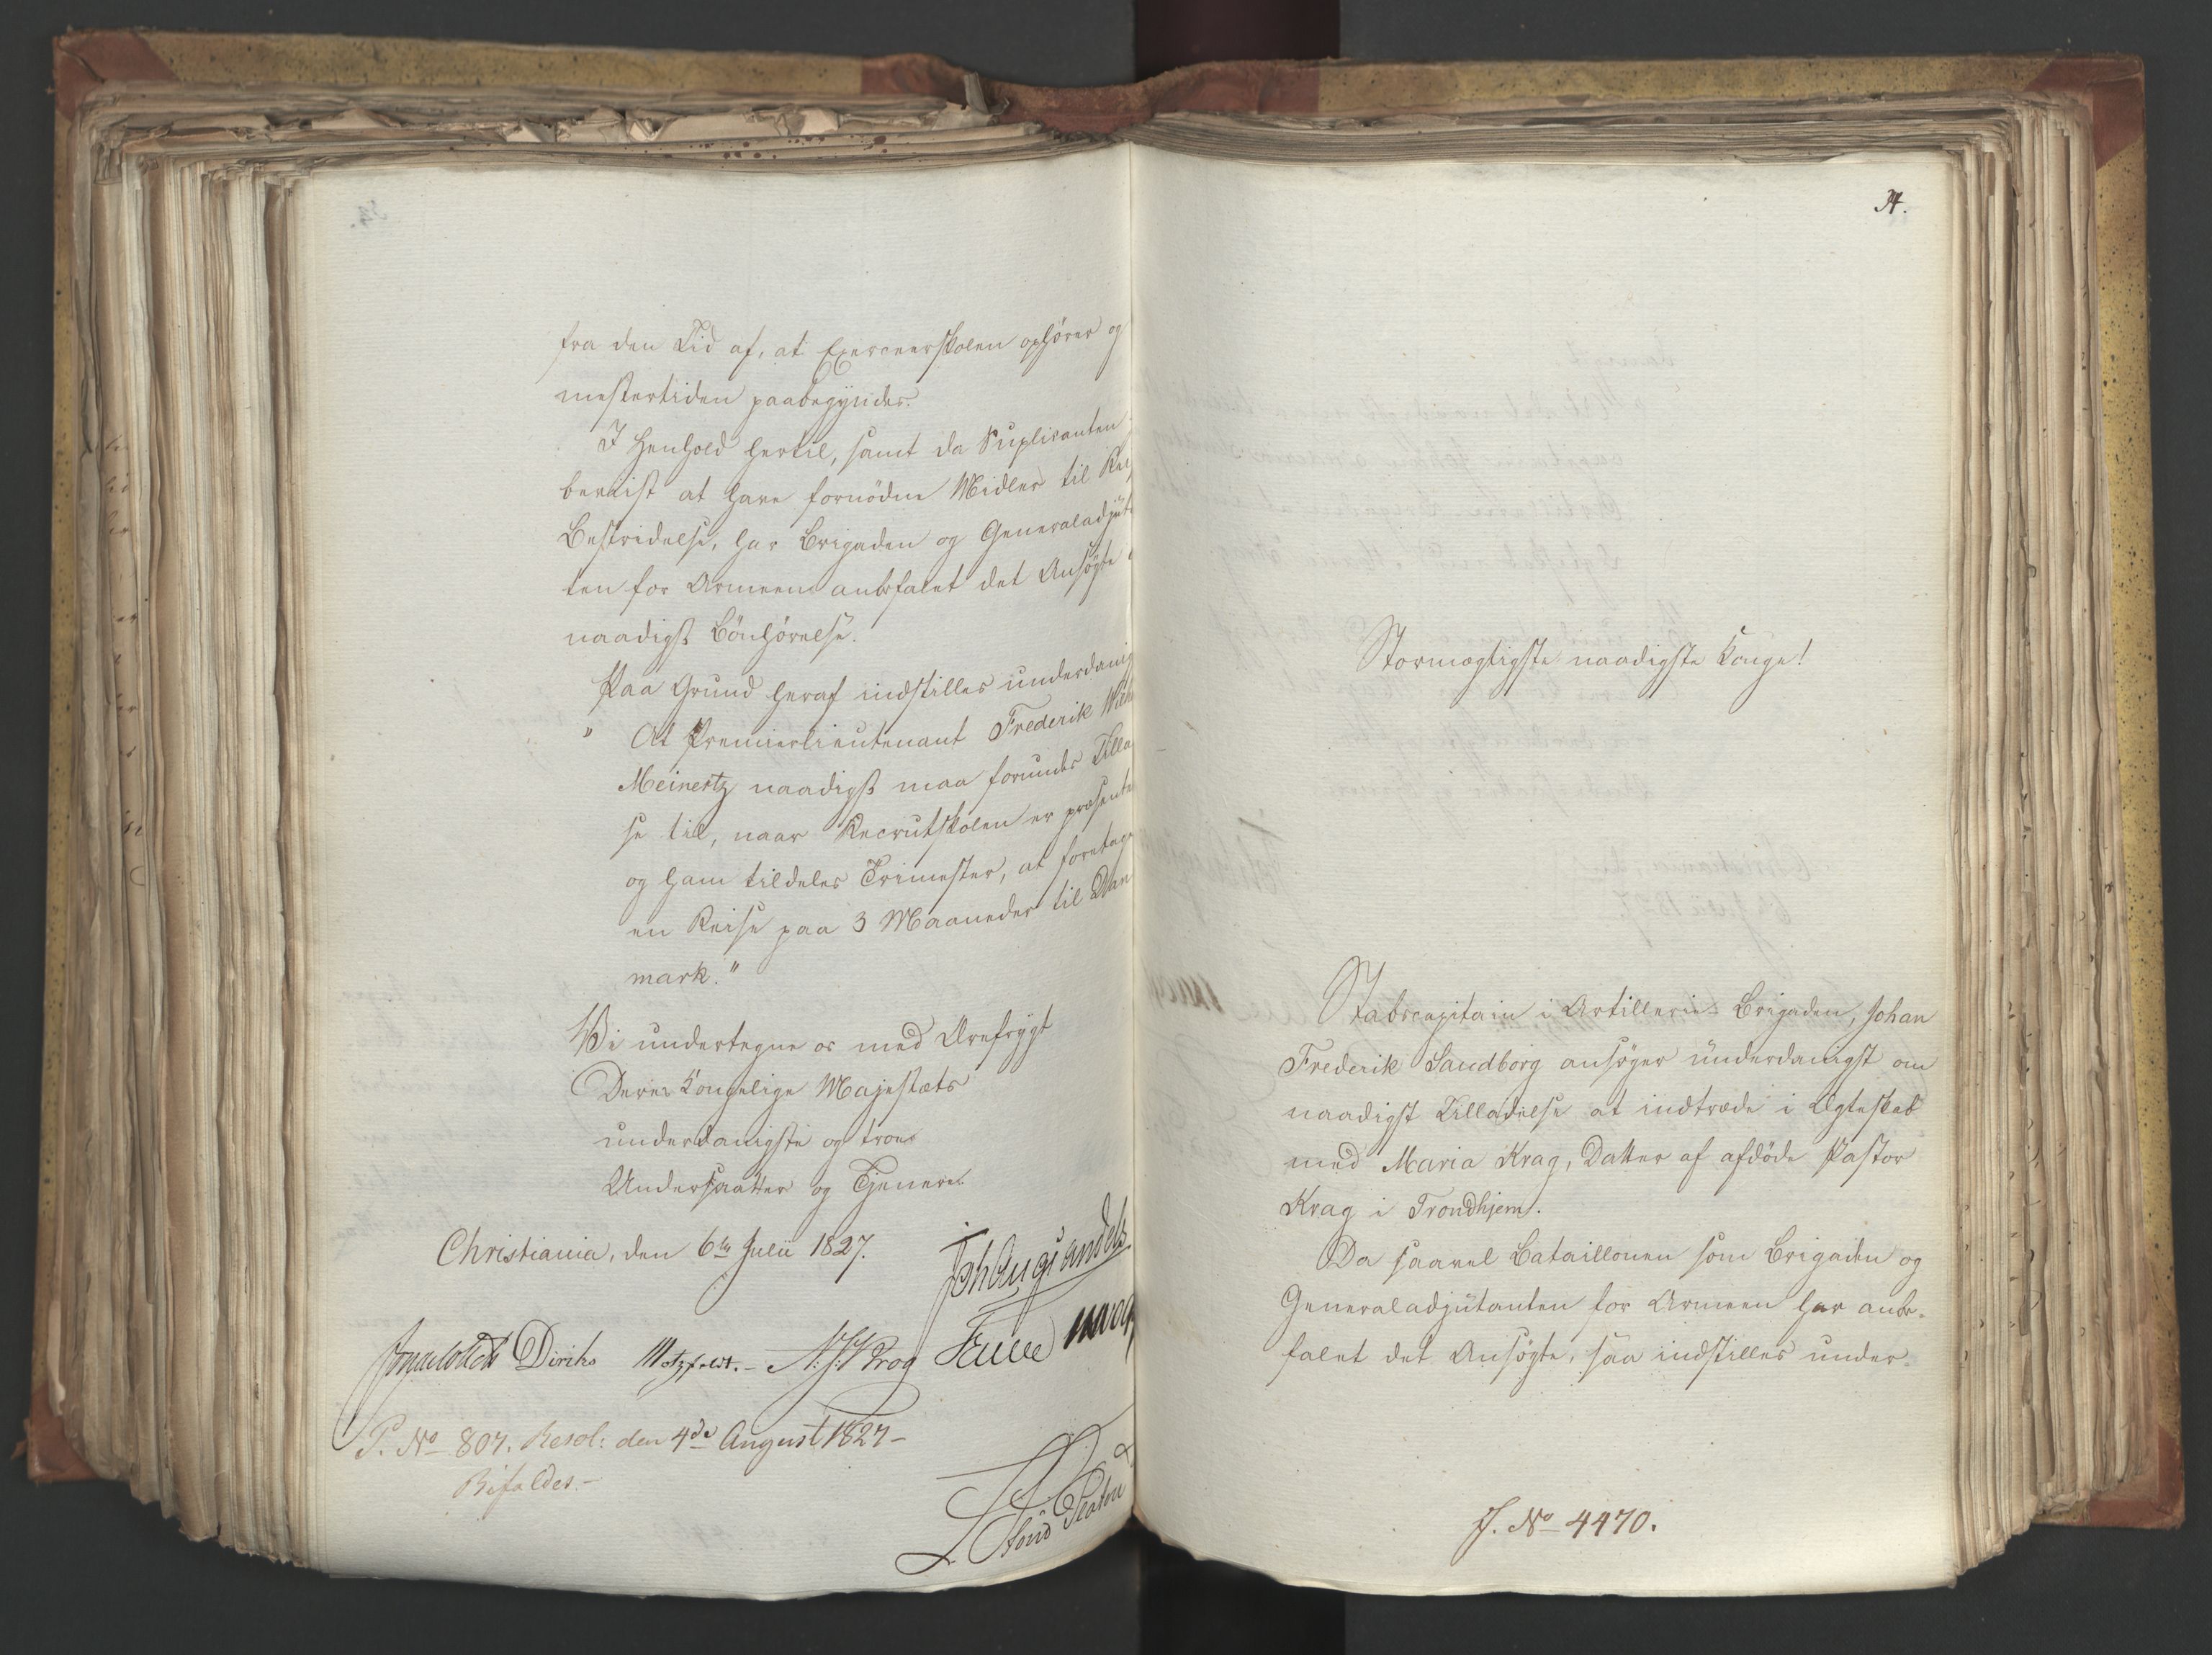 fra den Tid af, at Exerceerskolen ophører og
mestertiden paabegyndes.
I Henhold hertil, samt da Suplicanten
beviist at have fornødne Midler til
Bestridelse, har Brigaden og Generaladjüt
ten for Armeen anbefalet det Ansøgte
naadigst Bønhørelse.
Paa Grund heraf indstilles underdanig
" At Premierlieutenant Frederik Wilh
Meinertz naadigst maa forundes Tilla
se til, naar Recrutskolen er præsente
og ham tildeles Trimester, at foretage
en Reise paa 3 Maaneder til Dan
mark."
Vi undertegne os med Ærefrygt
Deres Kongelige Majestæts
underdanigste og troe
Undersaatter og Tjenere.
Christiania, den 6te Julii 1827.
Joh Aug Sandels
Diriks Motzfeldt.- Krog
P. No 807. Resol: den 4de August 1827-
Bifaldes.-
34.
Stormægtigste naadigste Konge!
Stabscapitain i Artillerie-Brigaden, Johan
Frederik Sandborg ansøger ünderdanigst om
naadigst Tilladelse at indtræde i Ægteskab
med Maria Krag, Datter af afdøde Pastor
Krag i Trondhjem.
Da saavel Bataillonen som Brigaden og
Generaladjütanten for Armeen har anbe-
falet det Ansøgte, saa indstilles under-
J. No 4470.